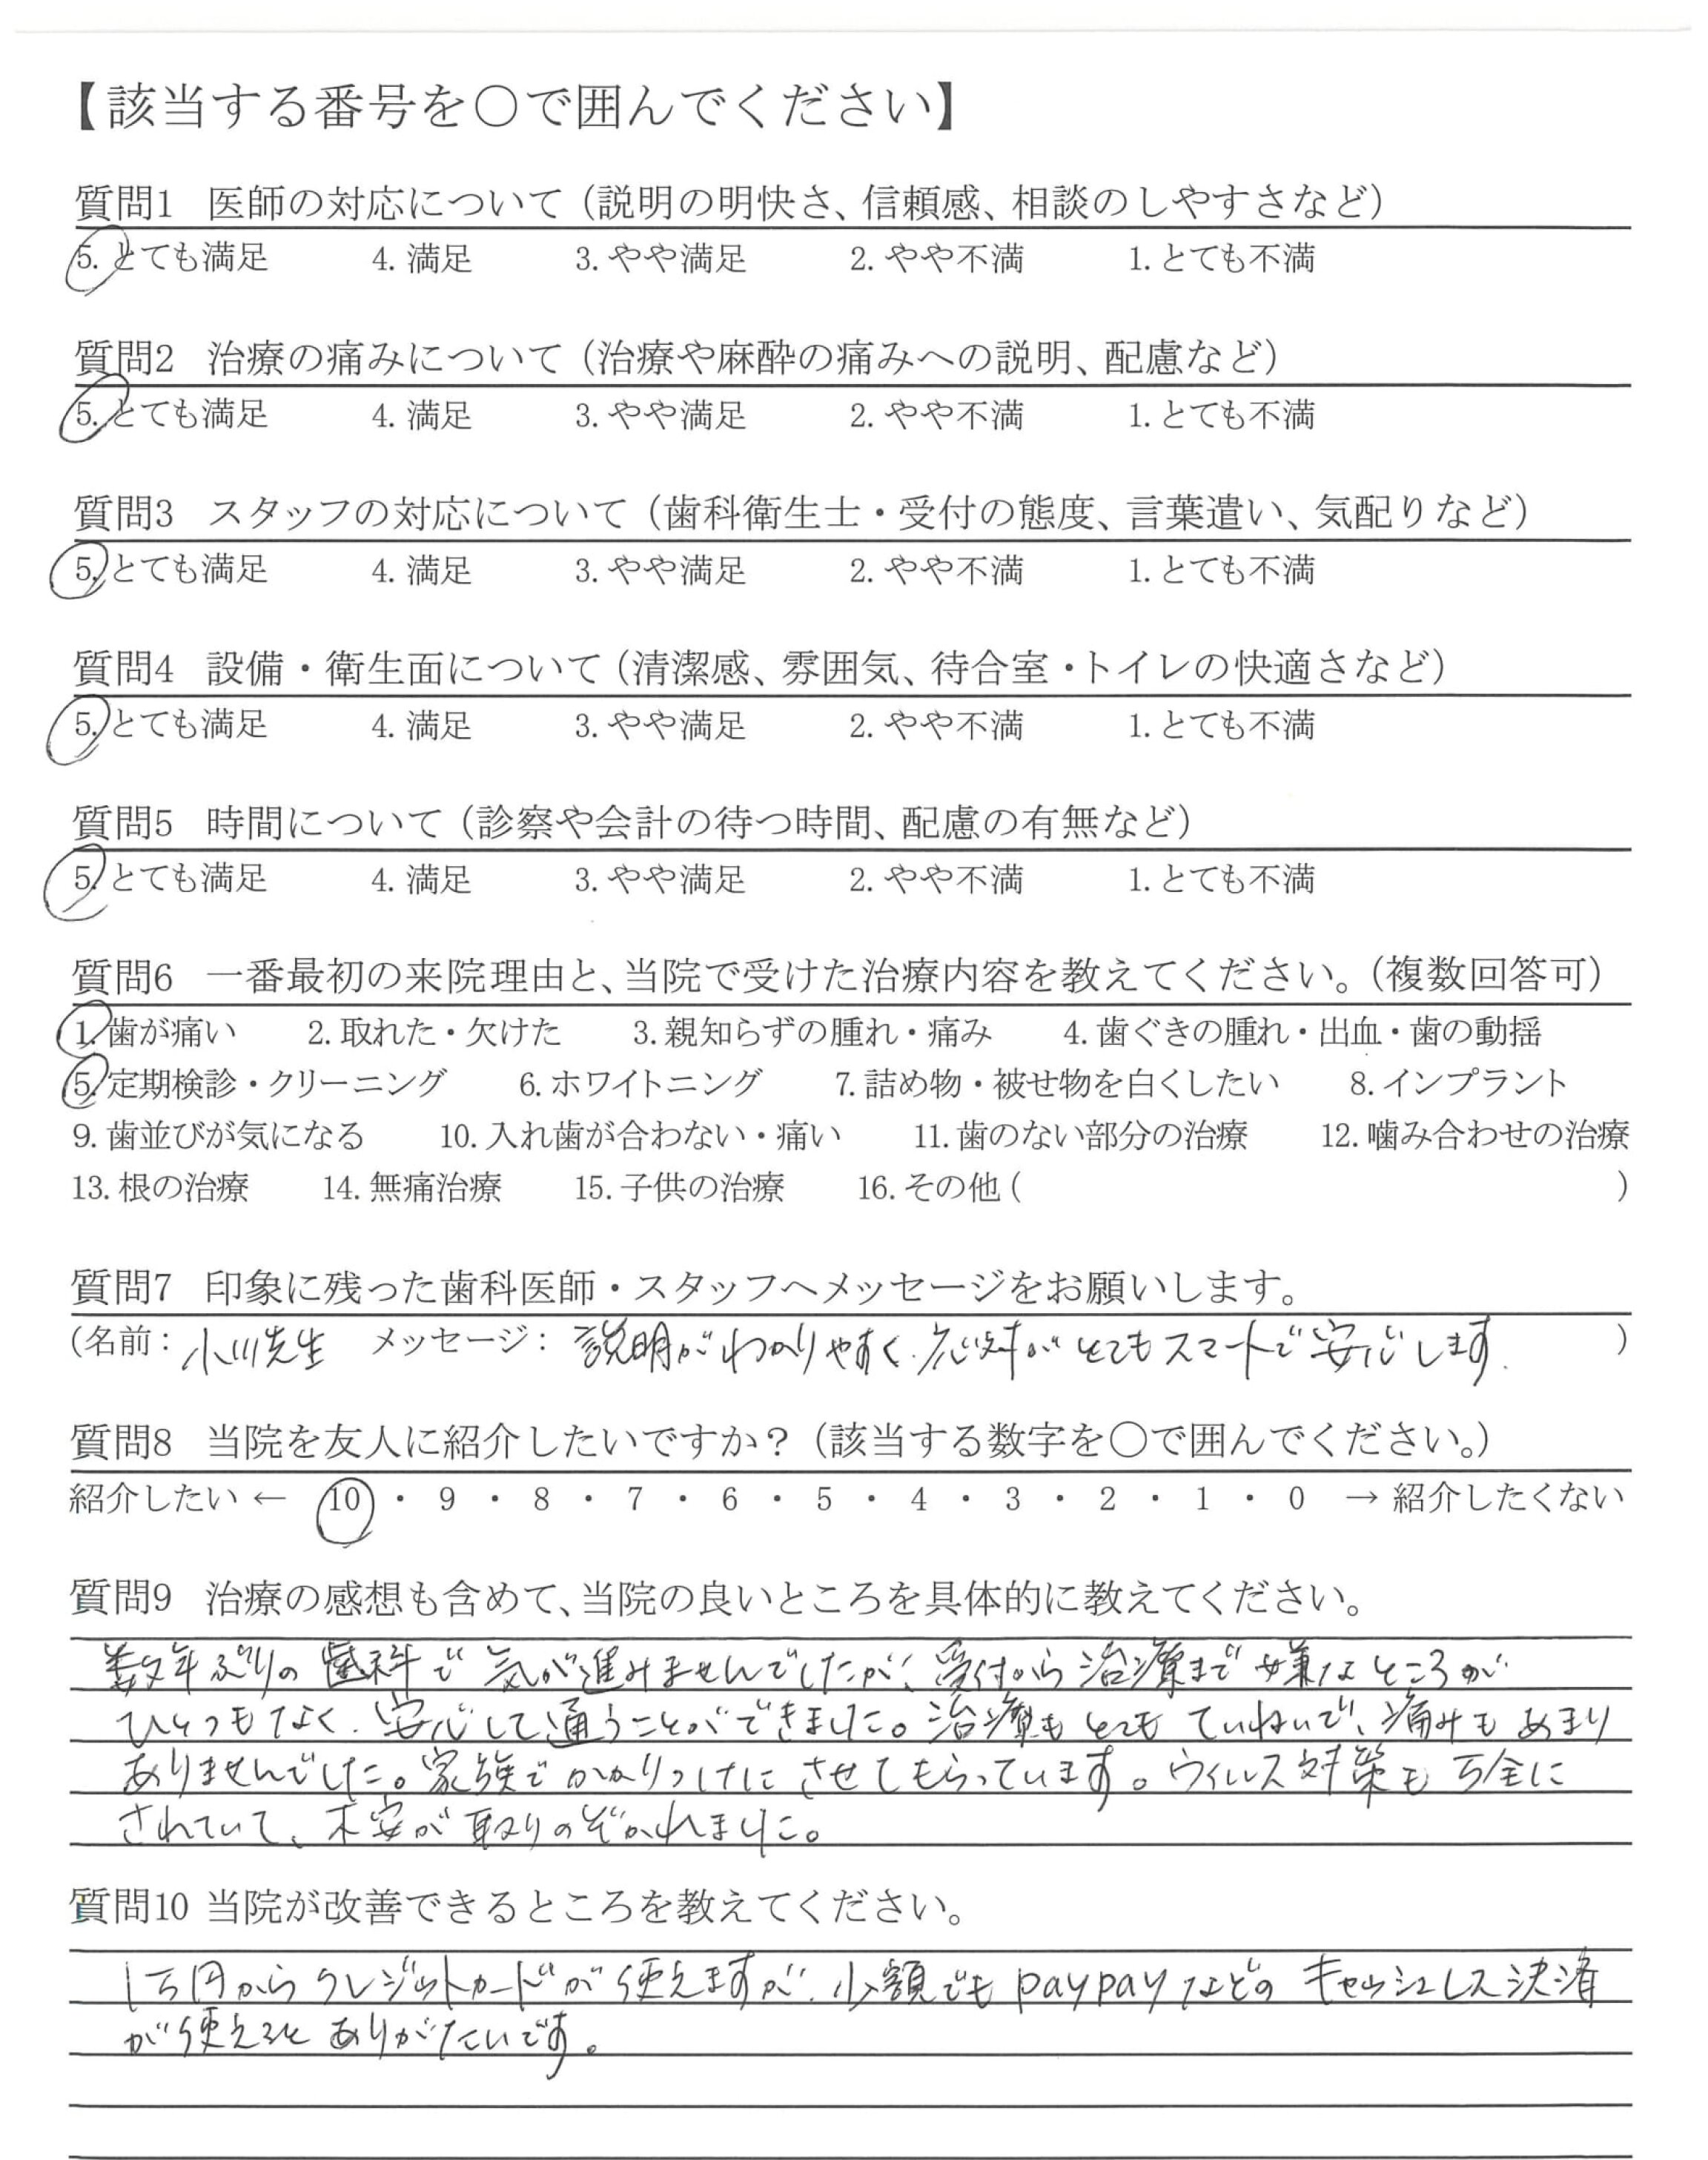 【該当する番号を○で囲んでください】
質問1 医師の対応について（説明の明快さ、信頼感、相談のしやすさなど）
5. とても満足 4. 満足 3. やや満足 2. やや不満 1. とても不満
質問2 治療の痛みについて（治療や麻酔の痛みへの説明、配慮など）
5. とても満足 4. 満足 3. やや満足 2. やや不満 1. とても不満
質問3 スタッフの対応について（歯科衛生士・受付の態度、言葉遣い、気配りなど）
5. とても満足 4. 満足 3. やや満足 2. やや不満 1. とても不満
質問4 設備・衛生面について（清潔感、雰囲気、待合室・トイレの快適さなど）
5. とても満足 4. 満足 3. やや満足 2. やや不満 1. とても不満
質問5 時間について（診察や会計の待つ時間、配慮の有無など）
5. とても満足 4. 満足 3. やや満足 2. やや不満 1. とても不満
質問6 一番最初の来院理由と、当院で受けた治療内容を教えてください。（複数回答可）
1. 歯が痛い 2. 取れた・欠けた 3. 親知らずの腫れ・痛み 4. 歯ぐきの腫れ・出血・歯の動揺
5. 定期検診・クリーニング 6. ホワイトニング 7. 詰め物・被せ物を白くしたい 8. インプラント
9. 歯並びが気になる 10. 入れ歯が合わない・痛い 11. 歯のない部分の治療 12. 噛み合わせの治療
13. 根の治療 14. 無痛治療 15. 子供の治療 16. その他（ ）
質問7 印象に残った歯科医師・スタッフへメッセージをお願いします。
（名前：小川先生 メッセージ：説明がわかりやすく、応対がとてもスマートで安心します。）
質問8 当院を友人に紹介したいですか？（該当する数字を○で囲んでください。）
紹介したい ← 10 ・ 9 ・ 8 ・ 7 ・ 6 ・ 5 ・ 4 ・ 3 ・ 2 ・ 1 ・ 0 → 紹介したくない
質問9 治療の感想も含めて、当院の良いところを具体的に教えてください。
数年ぶりの歯科で気が進みませんでしたが、受付から治療まで嫌なところが
ひとつもなく、安心して通うことができました。治療もとてもていねいで、痛みもあまり
ありませんでした。家族でかかりつけにさせてもらっています。ウィルス対策も万全に
されていて、不安が取りのぞかれました。
質問10 当院が改善できるところを教えてください。
1万円からクレジットカードが使えますが、少額でもpaypayなどのキャッシュレス決済
が使えるとありがたいです。